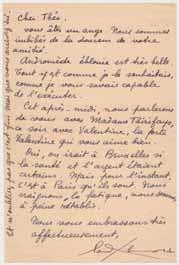 Cher Théo.
vous êtes un ange. Nous sommes
imbibés de la douceur de votre
amitié.
Andromède éblouie est très belle.
Tout y est comme je le souhaitais,
comme je vous savais capable
de l'exécuter.
Cet après-midi, nous parlerons
de vous avec Madame
ce soir avec Valentine, la forte
Valentine qui vous aime bien.
Oui, on irait à Bruxelles si
la santé et l'argent étaient
certains. Mais pour l'instant,
c'est à Paris qu'ils sont. Nous
craignons la fatigue, nous sommes
à peine rétablis.
Nous vous embrassons très
affectueusement,
Et n'oubliez pas que c'est